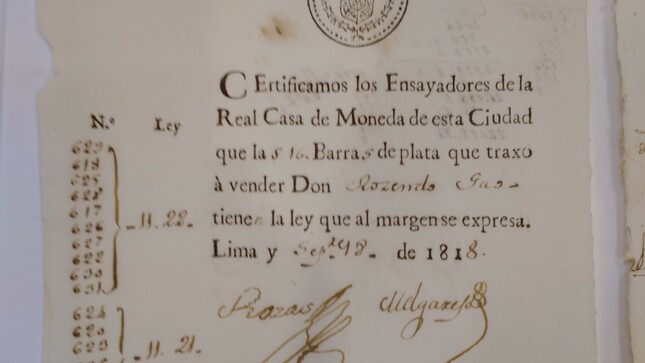 CErtificamos los Ensayadores de la
N.º Ley Real Casa de Moneda de esta Ciudad
que las 16. Barras de plata que traxo
à vender Don Rozendo Gao
tienen la ley que al margen se expresa.
Lima y Sepᵗᵉ 18. de 1818.
629
618
625
628
617
626
627
622
630
631
11. 22.
Rozas Melgarejo
624
620
623
11. 21.